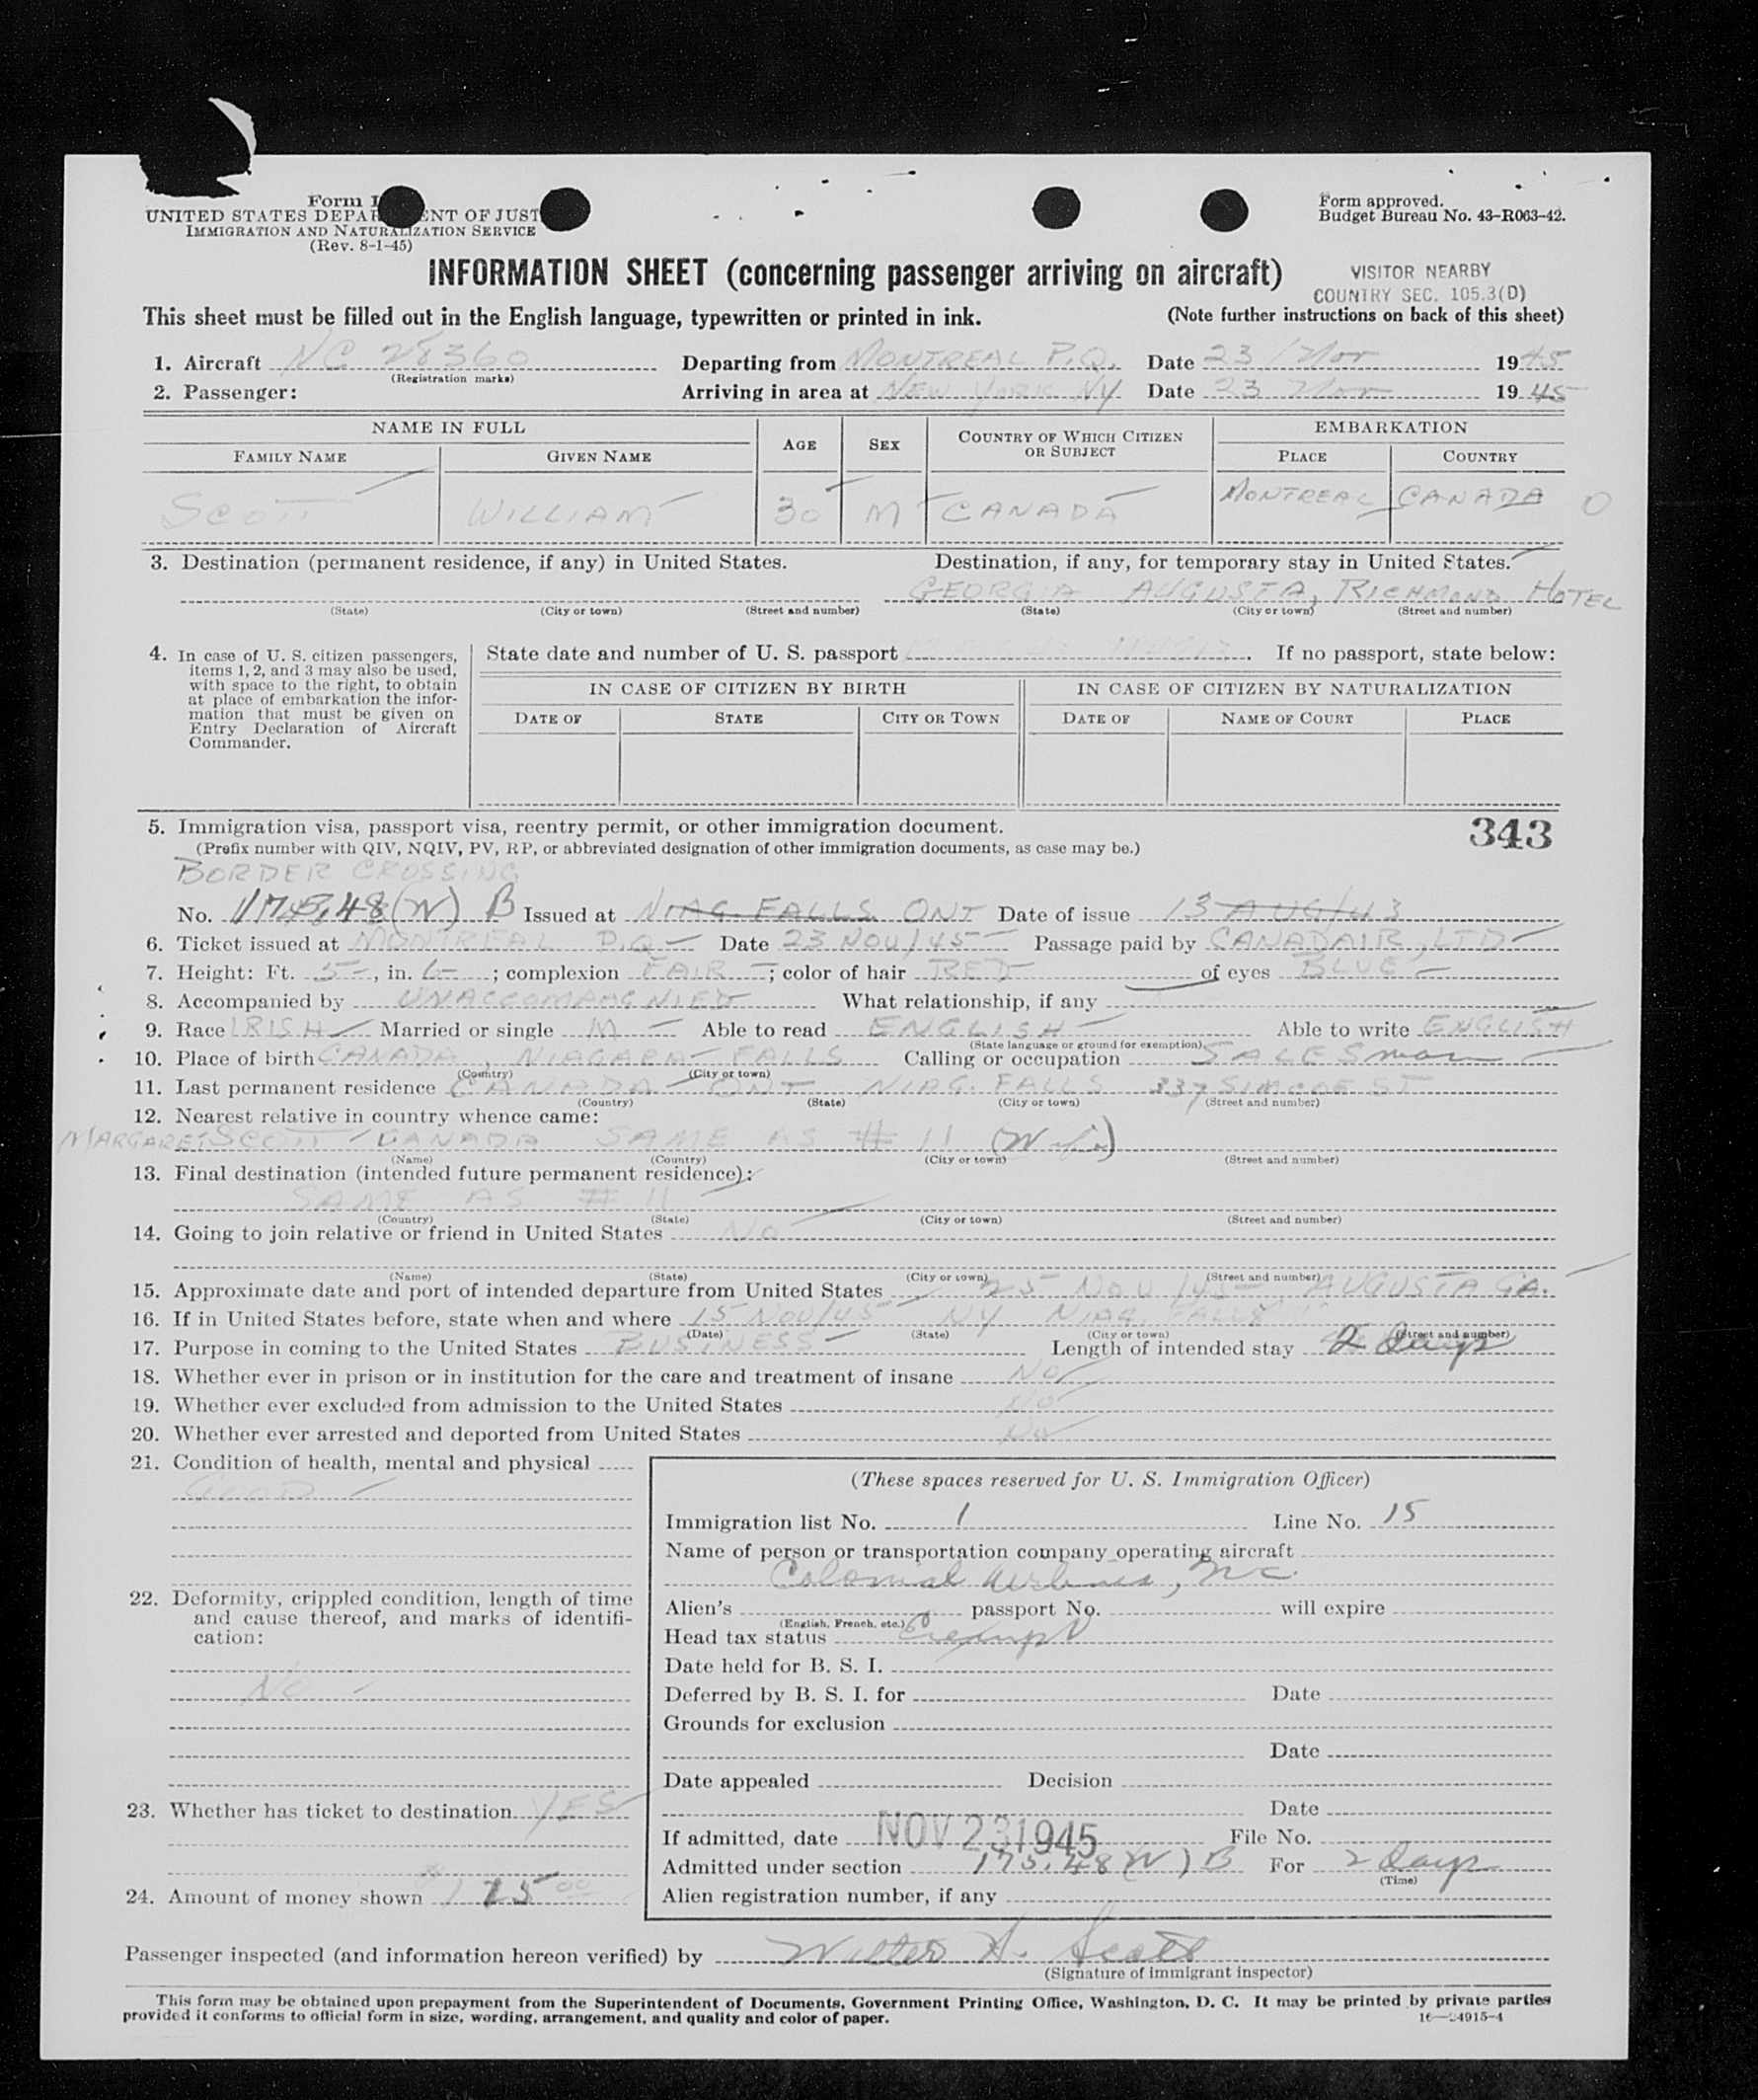 Form I
UNITED STATES DEPAR ENT OF JUST
IMMIGRATION AND NATURALIZATION SERVICE
(Rev. 8-1-45)
Form approved.
Budget Bureau No. 43-R063-42.
INFORMATION SHEET (concerning passenger arriving on aircraft)
VISITOR NEARBY
COUNTRY SEC. 105.3(D)
This sheet must be filled out in the English language, typewritten or printed in ink. (Note further instructions on back of this sheet)
1. Aircraft NC 28360 Departing from MONTREAL P.Q. Date 23 Nov 1945
(Registration marks)
2. Passenger: Arriving in area at NEW YORK NY Date 23 Nov 1945
NAME IN FULL AGE SEX COUNTRY OF WHICH CITIZEN OR SUBJECT EMBARKATION
FAMILY NAME GIVEN NAME PLACE COUNTRY
SCOTT WILLIAM 30 M CANADA MONTREAL CANADA 0
3. Destination (permanent residence, if any) in United States. Destination, if any, for temporary stay in United States.
GEORGIA AUGUSTA, RICHMOND HOTEL
(State) (City or town) (Street and number) (State) (City or town) (Street and number)
4. In case of U. S. citizen passengers, items 1, 2, and 3 may also be used, with space to the right, to obtain at place of embarkation the information that must be given on Entry Declaration of Aircraft Commander.
State date and number of U. S. passport If no passport, state below:
IN CASE OF CITIZEN BY BIRTH IN CASE OF CITIZEN BY NATURALIZATION
DATE OF STATE CITY OR TOWN DATE OF NAME OF COURT PLACE
5. Immigration visa, passport visa, reentry permit, or other immigration document. 343
(Prefix number with QIV, NQIV, PV, RP, or abbreviated designation of other immigration documents, as case may be.)
BORDER CROSSING
No. B Issued at NIAG. FALLS ONT Date of issue 13 AUG/43
6. Ticket issued at MONTREAL P.Q. Date 23 NOV/45 Passage paid by CANADAIR, LTD
7. Height: Ft. 5, in. 6; complexion FAIR; color of hair RED of eyes BLUE
8. Accompanied by UNACCOMPAGNIED What relationship, if any
9. Race IRISH Married or single M Able to read ENGLISH Able to write ENGLISH
(State language or ground for exemption)
10. Place of birth CANADA, NIAGARA FALLS Calling or occupation SALESman
(Country) (City or town)
11. Last permanent residence CANADA ONT NIAG. FALLS 337 SIMCOE ST
(Country) (State) (City or town) (Street and number)
12. Nearest relative in country whence came:
MARGARET SCOTT CANADA SAME AS # 11 (Wife)
(Name) (Country) (City or town) (Street and number)
13. Final destination (intended future permanent residence):
SAME AS # 11
(Country) (State) (City or town) (Street and number)
14. Going to join relative or friend in United States NO
(Name) (State) (City or town) (Street and number)
15. Approximate date and port of intended departure from United States 25 NOV/45 AUGUSTA GA.
16. If in United States before, state when and where 15 NOV/45 NY NIAG. FALLS
(Date) (State) (City or town) (Street and number)
17. Purpose in coming to the United States BUSINESS Length of intended stay 2 Days
18. Whether ever in prison or in institution for the care and treatment of insane NO
19. Whether ever excluded from admission to the United States NO
20. Whether ever arrested and deported from United States NO
21. Condition of health, mental and physical
GOOD
22. Deformity, crippled condition, length of time and cause thereof, and marks of identification:
NO
23. Whether has ticket to destination YES
24. Amount of money shown
(These spaces reserved for U. S. Immigration Officer)
Immigration list No. 1 Line No. 15
Name of person or transportation company operating aircraft
Colonial Airlines, Inc.
Alien's passport No. will expire
(English, French, etc.)
Head tax status Exempt
Date held for B. S. I.
Deferred by B. S. I. for Date
Grounds for exclusion
Date
Date appealed Decision
Date
If admitted, date NOV 23 1945 File No.
Admitted under section 175.48(W)B For 2 Days
(Time)
Alien registration number, if any
Passenger inspected (and information hereon verified) by Walter A. Scott
(Signature of immigrant inspector)
This form may be obtained upon prepayment from the Superintendent of Documents, Government Printing Office, Washington, D. C. It may be printed by private parties
provided it conforms to official form in size, wording, arrangement, and quality and color of paper. 16—24915-4